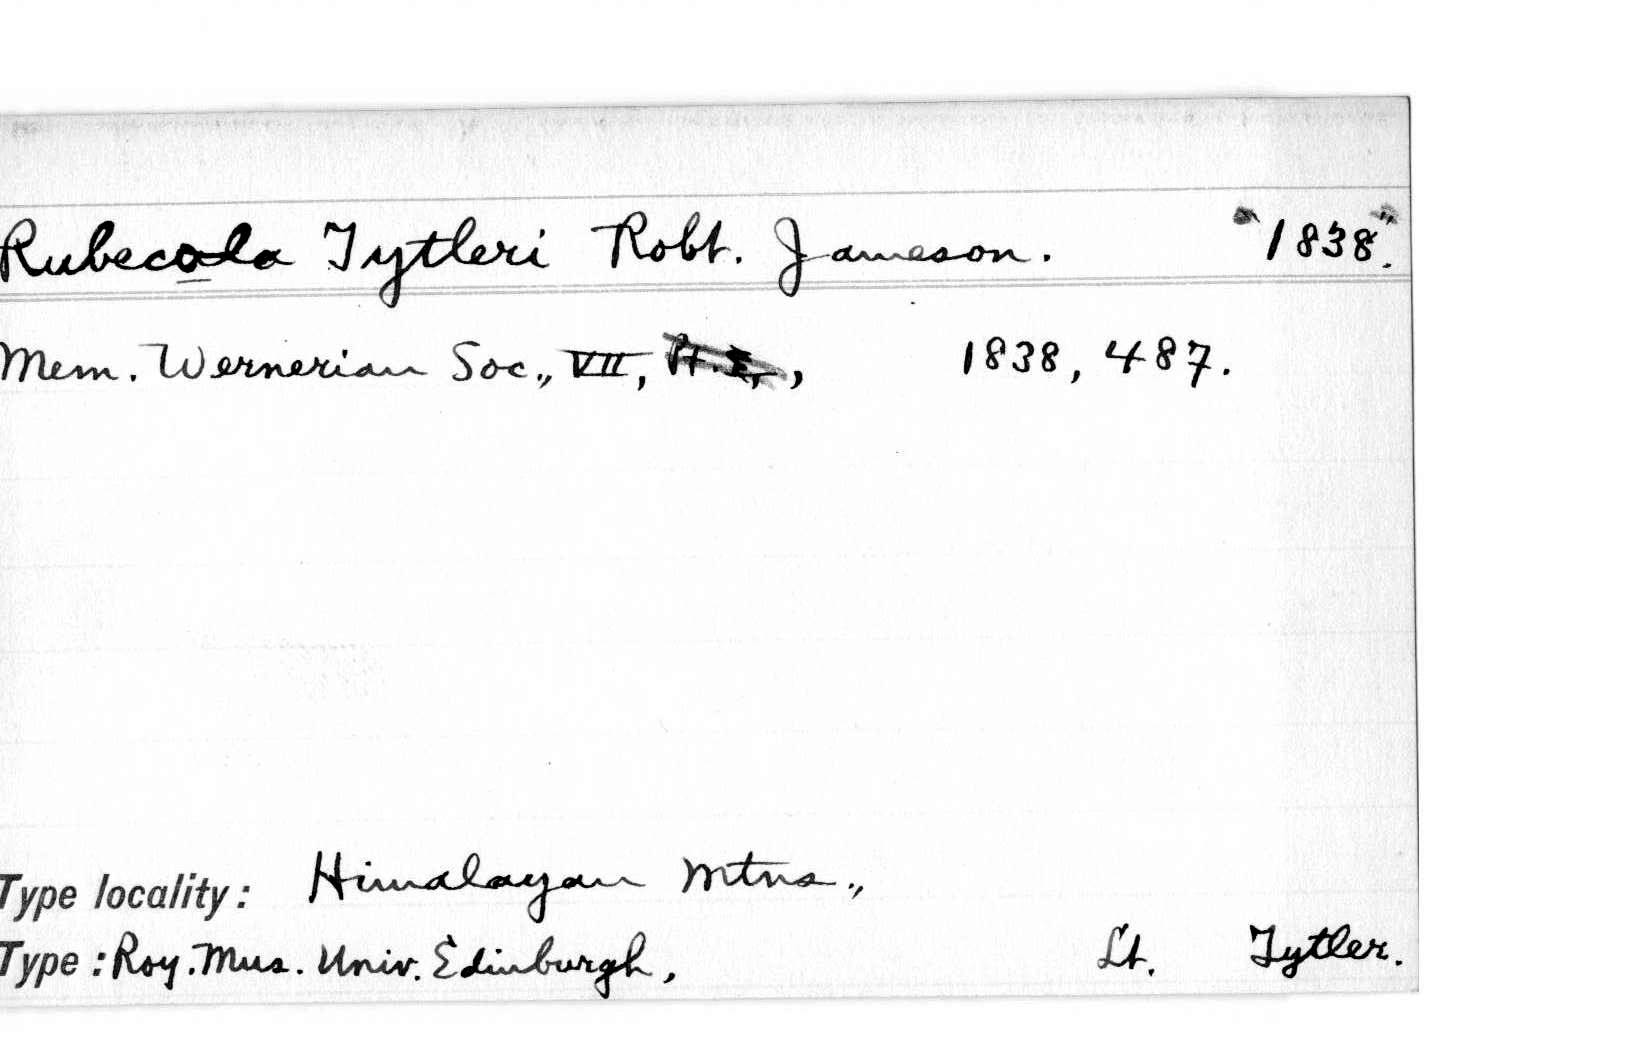 Rubecola Tytleri Robt. Jameson. "1838".
Mem. Wernerian Soc., VII, Pt. I, , 1838, 487.
Type locality: Himalayan Mtns.,
Type: Roy. Mus. Univ. Edinburgh, Lt. Tytler.